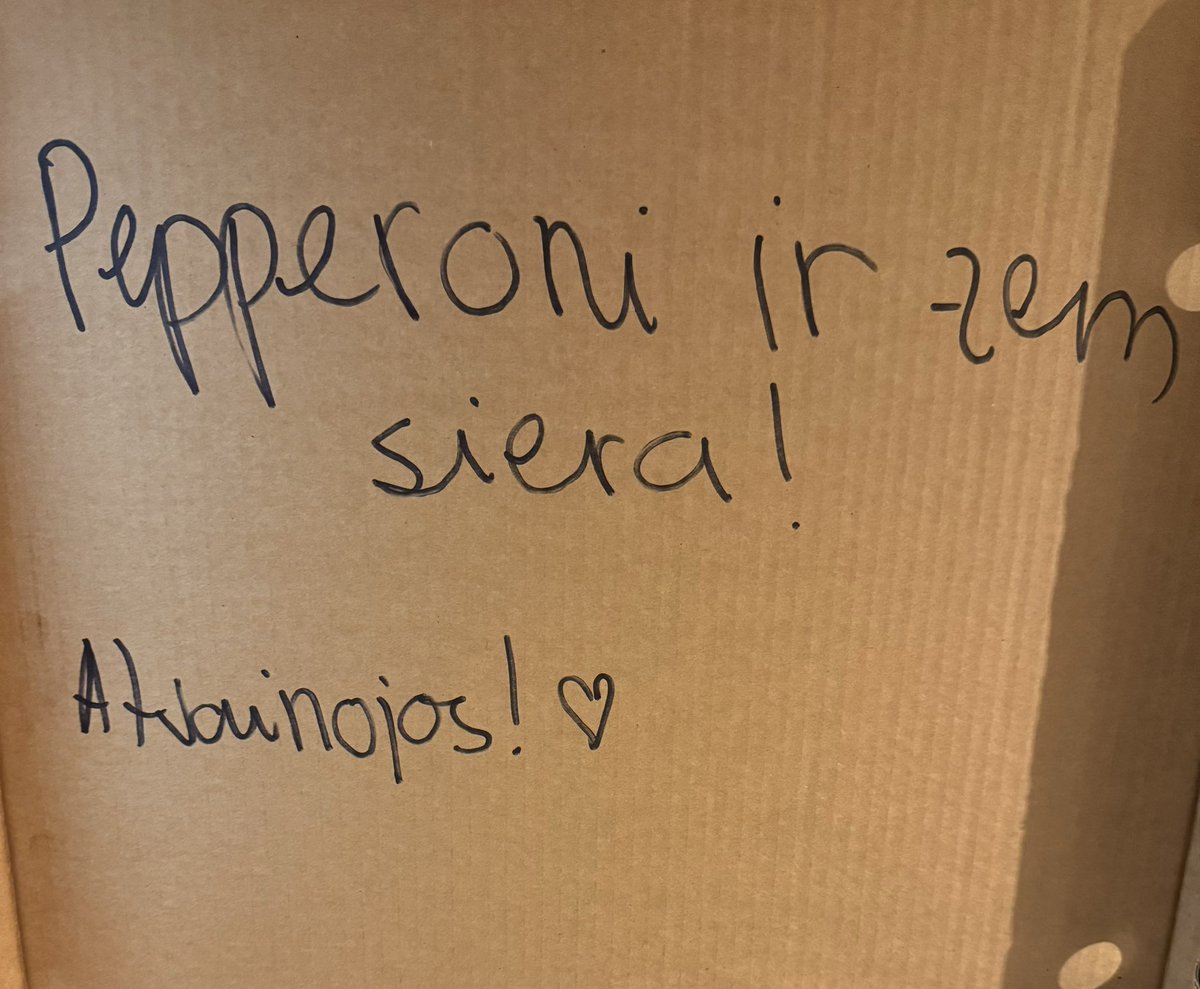 Pepperoni ir zem
siera!
Atvainojos! ♡